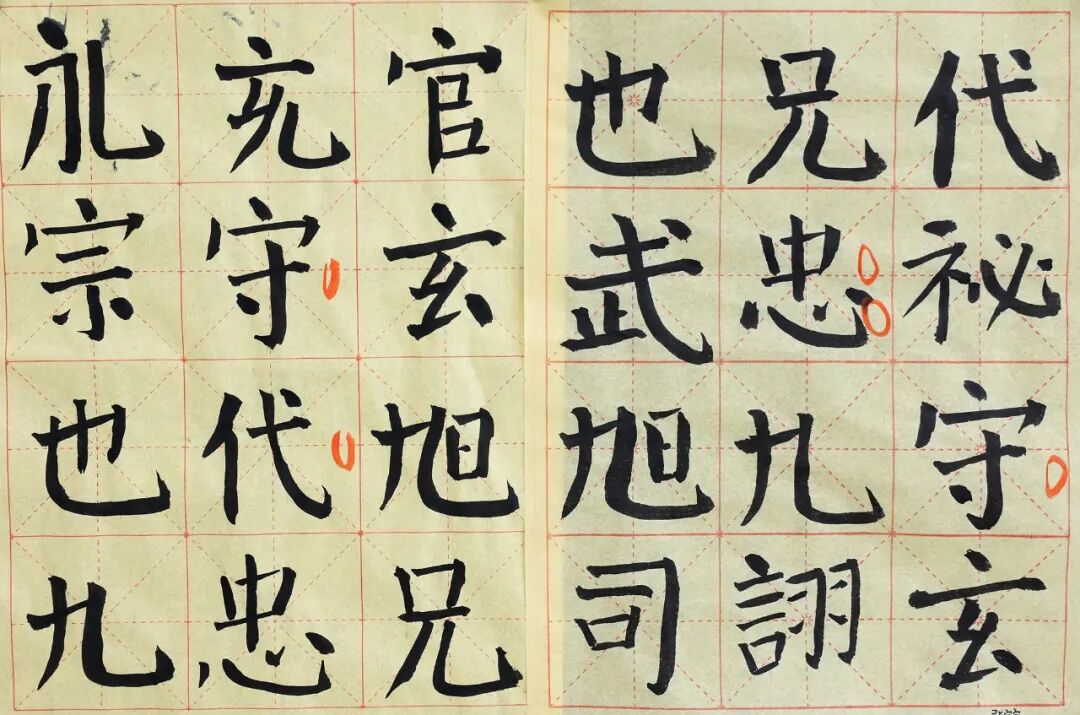 代祕守玄
兄忠九詡
也武旭司
官玄旭兄
守代忠
宗也九